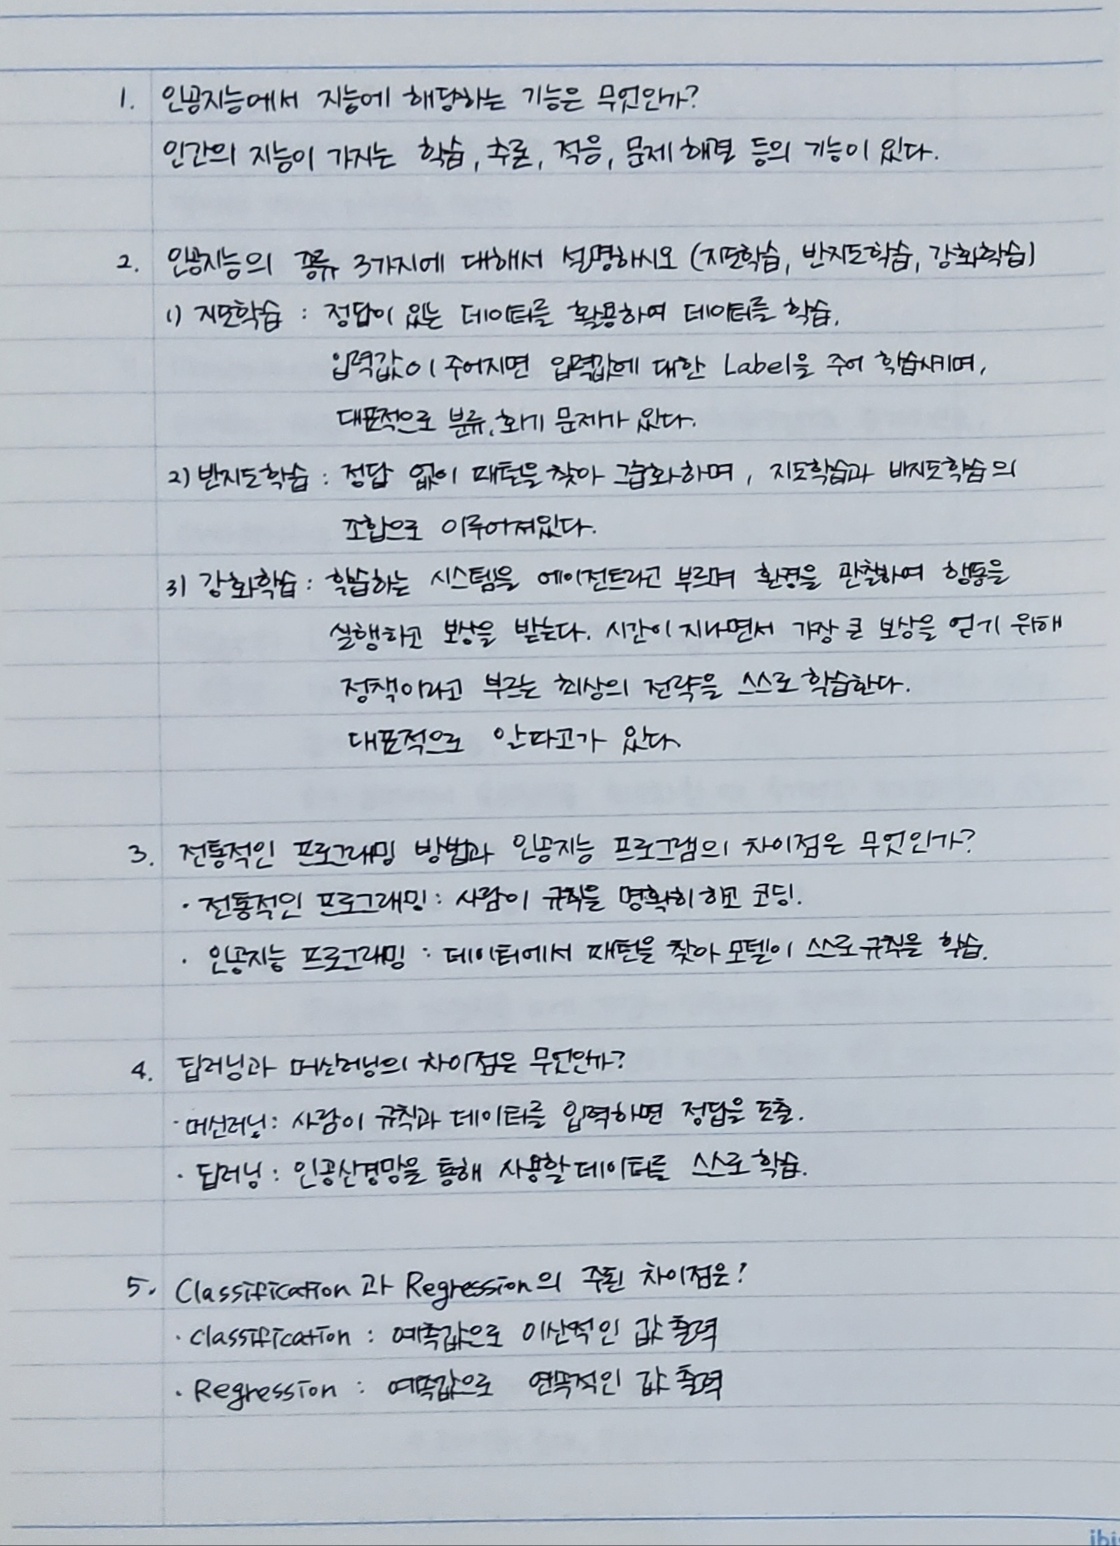 1. 인공지능에서 지능에 해당하는 기능은 무엇인가?
인간의 지능이 가지는 학습, 추론, 적응, 문제 해결 등의 기능이 있다.
2. 인공지능의 종류 3가지에 대해서 설명하시오 (지도학습, 반지도학습, 강화학습)
1) 지도학습 : 정답이 있는 데이터를 활용하여 데이터를 학습.
입력값이 주어지면 입력값에 대한 Label을 주어 학습시키며,
대표적으로 분류, 회기 문제가 있다.
2) 반지도학습 : 정답 없이 패턴을 찾아 그룹화하며, 지도학습과 비지도학습의
조합으로 이루어져있다.
3) 강화학습 : 학습하는 시스템을 에이전트라고 부르며 환경을 관찰하여 행동을
실행하고 보상을 받는다. 시간이 지나면서 가장 큰 보상을 얻기 위해
정책이라고 부르는 최상의 전략을 스스로 학습한다.
대표적으로 알파고가 있다.
3. 전통적인 프로그래밍 방법과 인공지능 프로그램의 차이점은 무엇인가?
· 전통적인 프로그래밍 : 사람이 규칙을 명확히 하고 코딩.
· 인공지능 프로그래밍 : 데이터에서 패턴을 찾아 모델이 스스로 규칙을 학습.
4. 딥러닝과 머신러닝의 차이점은 무엇인가?
· 머신러닝 : 사람이 규칙과 데이터를 입력하면 정답을 도출.
· 딥러닝 : 인공신경망을 통해 사용할 데이터를 스스로 학습.
5. Classification 과 Regression의 주된 차이점은?
· Classification : 예측값으로 이산적인 값 출력
· Regression : 예측값으로 연속적인 값 출력
ibi